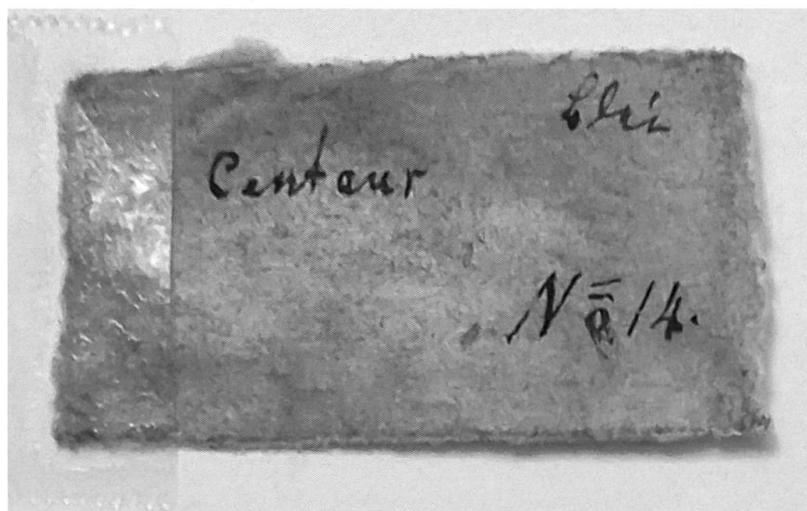 Blei
Centaur
Nō 14.